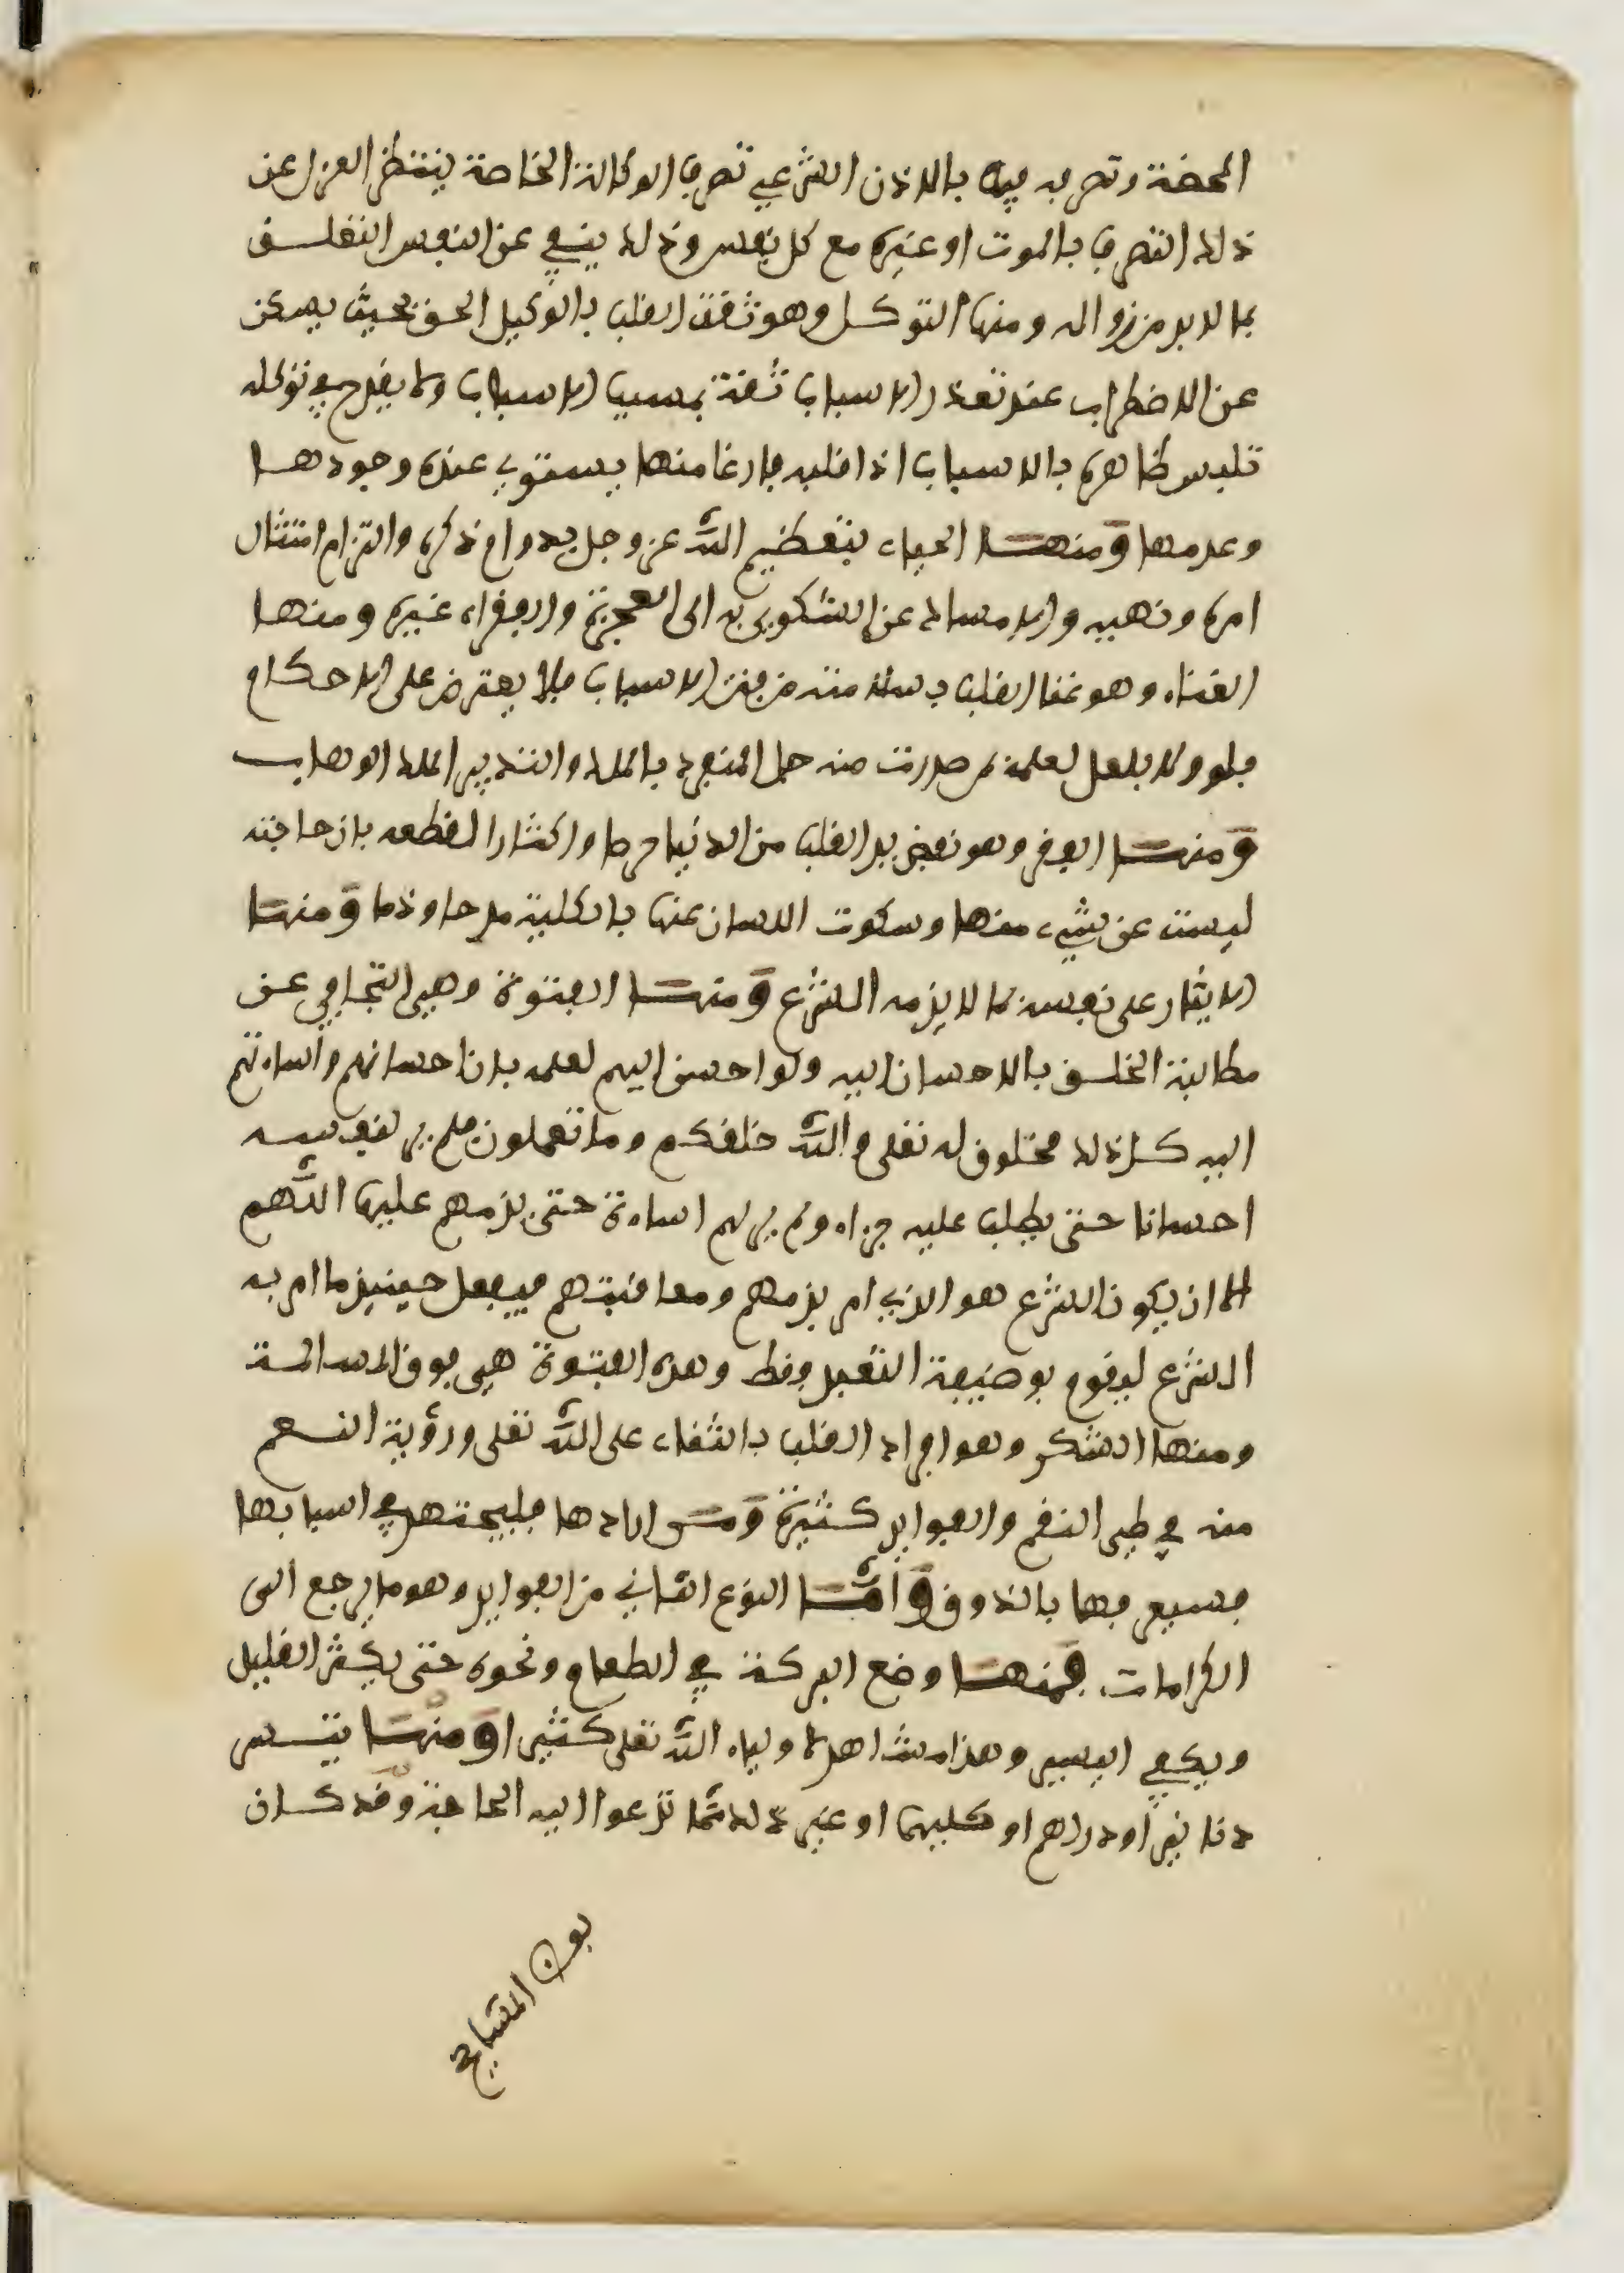 المحضة وتصرفه فيها بالاذن الشرعي تصرف الوكالة الخاصة ينتظر العزل عن
ذلك التصرف بالموت او غيره مع كل نفس وذلك ينفي عن النفس التعلق
بما لا بد من زواله ومنها التوكل وهو ثقة القلب بالوكيل الحق بحيث يسكن
عن الاضطراب عند تعذر الاسباب ثقة بمسبب الاسباب ولا يقدح في توكله
تلبس ظاهره بالاسباب اذا قلبه فارغا منها يستوي عنده وجودها
وعدمها ومنها الحياء بتعظيم الله عز وجل بدوام ذكره والتزام امتثال
امره ونهيه والامساك عن الشكوى به الى العجزة والفقراء غيره ومنها
الغناء وهو غنا القلب بسلامته من فتن الاسباب فلا يعترض على الاحكام
بلو ولا بلعل لعلمه بمن صدرت منه جل المنفرد بالملك والتدبير الملك الوهاب
ومنها الفقر وهو نفض يد القلب من الدنيا حرصا واكثارا لقطعه بان حاجته
ليست عن شيء منها وسكوت اللسان عنها بالكلية مدحا وذما ومنها
الايثار على نفسه بما لا يذمه الشرع ومنها الفتوة وهي التجافي عن
مطالبة الخلق بالاحسان اليه ولو احسن اليهم لعلمه بان احسانهم واساءتهم
اليه كل ذلك مخلوق له تعلى والله خلقكم وما تعملون فلم ير لنفسه
احسانا حتى يطلب عليه جزاء ولم ير لهم اساءة حتى يذمهم عليها اللهم
الا ان يكون الشرع هو الذي امر بذمهم ومعاقبتهم فيفعل حينيذ ما امر به
الشرع ليقوم بوضيفة التعبد وفط وهذه الفتوة هي فوق المسالمة
ومنها الشكر وهو افراد القلب بالثناء على الله تعلى ورؤية النعم
منه في طي النقم والفوايد كثيرة ومن ارادها فليجتهد في اسبابها
فسيعرفها بالذوق وأما النوع الثاني من الفوايد وهو ما يرجع الى
الكرامات. فمنها وضع البركة في الطعام ونحوه حتى يكثر القليل
ويكفي اليسير وهذا مشاهد لاولياء الله تعلى كثيرا ومنها تيسر
دنانير أو دراهم او كليهما او غير ذلك مما تدعوا اليه الحاجة وقد كان
بعض المشايخ